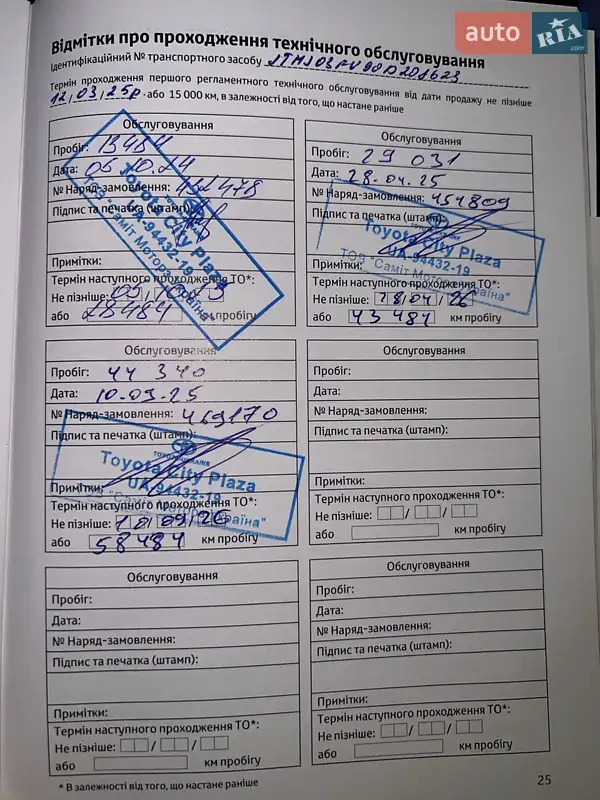 auto RIA .com
Відмітки про проходження технічного обслуговування
Ідентифікаційний № транспортного засобу JTMJ03FV90D201623
Термін проходження першого регламентного технічного обслуговування від дати продажу не пізніше
12/03/25р. або 15 000 км, в залежності від того, що настане раніше
Обслуговування
Пробіг: 13484
Дата: 05.10.24
№ Наряд-замовлення: 432478
Підпис та печатка (штамп):
Toyota City Plaza
UA-94432-19
ТОВ "Саміт Моторз Україна"
Примітки:
Термін наступного проходження ТО*:
Не пізніше: 05/10/25
або 28484 км пробігу
Обслуговування
Пробіг: 29 031
Дата: 28.04.25
№ Наряд-замовлення: 454809
Підпис та печатка (штамп):
Toyota City Plaza
UA-94432-19
ТОВ "Саміт Моторз Україна"
Примітки:
Термін наступного проходження ТО*:
Не пізніше: 28/04/26
або 43484 км пробігу
Обслуговування
Пробіг: 44 340
Дата: 10.09.25
№ Наряд-замовлення: 469170
Підпис та печатка (штамп):
TOYOTA UKRAINE
Toyota City Plaza
UA-94432-19
ТОВ "Саміт Моторз Україна"
Примітки:
Термін наступного проходження ТО*:
Не пізніше: 10/09/26
або 58484 км пробігу
Обслуговування
Пробіг:
Дата:
№ Наряд-замовлення:
Підпис та печатка (штамп):
Примітки:
Термін наступного проходження ТО*:
Не пізніше: / /
або км пробігу
Обслуговування
Пробіг:
Дата:
№ Наряд-замовлення:
Підпис та печатка (штамп):
Примітки:
Термін наступного проходження ТО*:
Не пізніше: / /
або км пробігу
Обслуговування
Пробіг:
Дата:
№ Наряд-замовлення:
Підпис та печатка (штамп):
Примітки:
Термін наступного проходження ТО*:
Не пізніше: / /
або км пробігу
* В залежності від того, що настане раніше
25